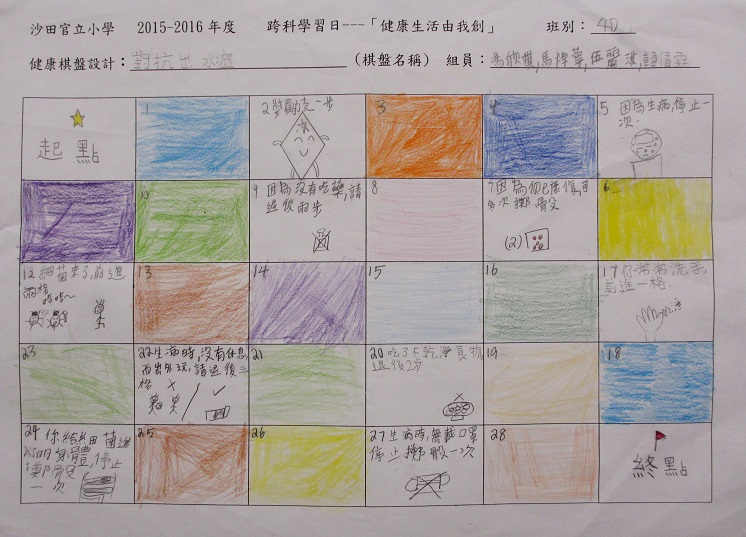 沙田官立小學 2015-2016 年度 跨科學習日---「健康生活由我創」 班別： 4D
健康棋盤設計： 對抗出水痘 （棋盤名稱） 組員：
起點 1 2 獎勵走一步 3 4 5 因為生病,停止一
次.
10 9 因為沒有吃藥,請
退後兩步
8 7 因為你已康復,可
多次擲骰
(2)
6
12 細菌來了,前進
兩格
13 14 15 16 17 你有常洗手
前進一格.
23 22 生病時,沒有休息,
而出外玩,請退後三
格
21 20 吃了不乾淨食物
退後2步
19 18
24 你給細菌進
入身體,停止
擲
一次
25 26 27 生病時,無戴口罩
停止擲骰一次
28 終點